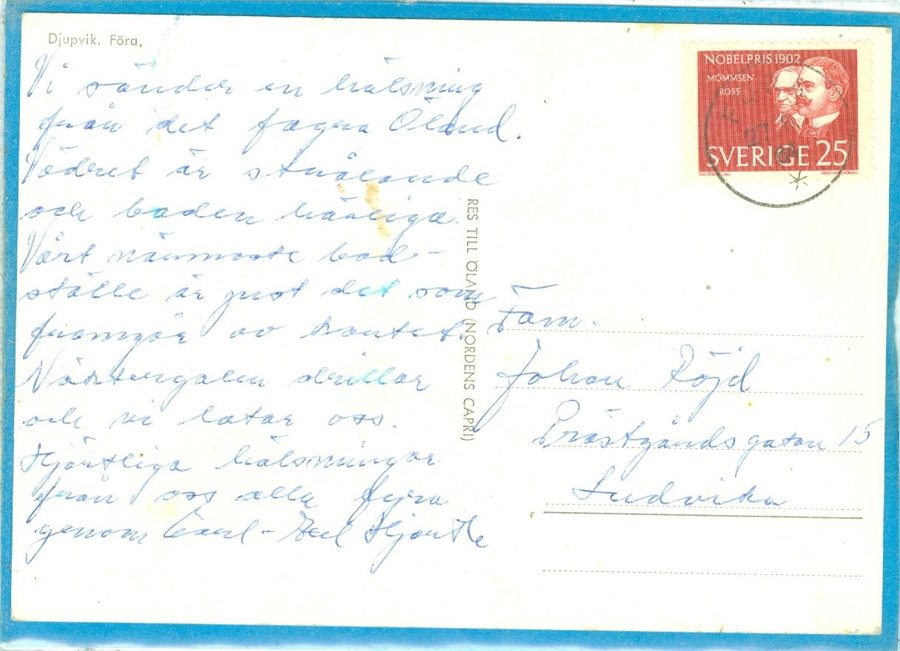 Djupvik. Föra.
Vi sänder en hälsning
från det fagra Öland.
Vädret är strålande
och baden härliga.
Vårt närmaste bad-
ställe är just det som
framgår av kortet.
Näktergalen drillar
och vi latar oss.
Hjärtliga hälsningar
från oss alla fyra
genom Carl-Axel Hjärtle
RES TILL ÖLAND (NORDENS CAPRI)
NOBELPRIS 1902
MOMMSEN
ROSS
SVERIGE 25
Fam.
Johan Röjd
Prästgårdsgatan 15
Ludvika